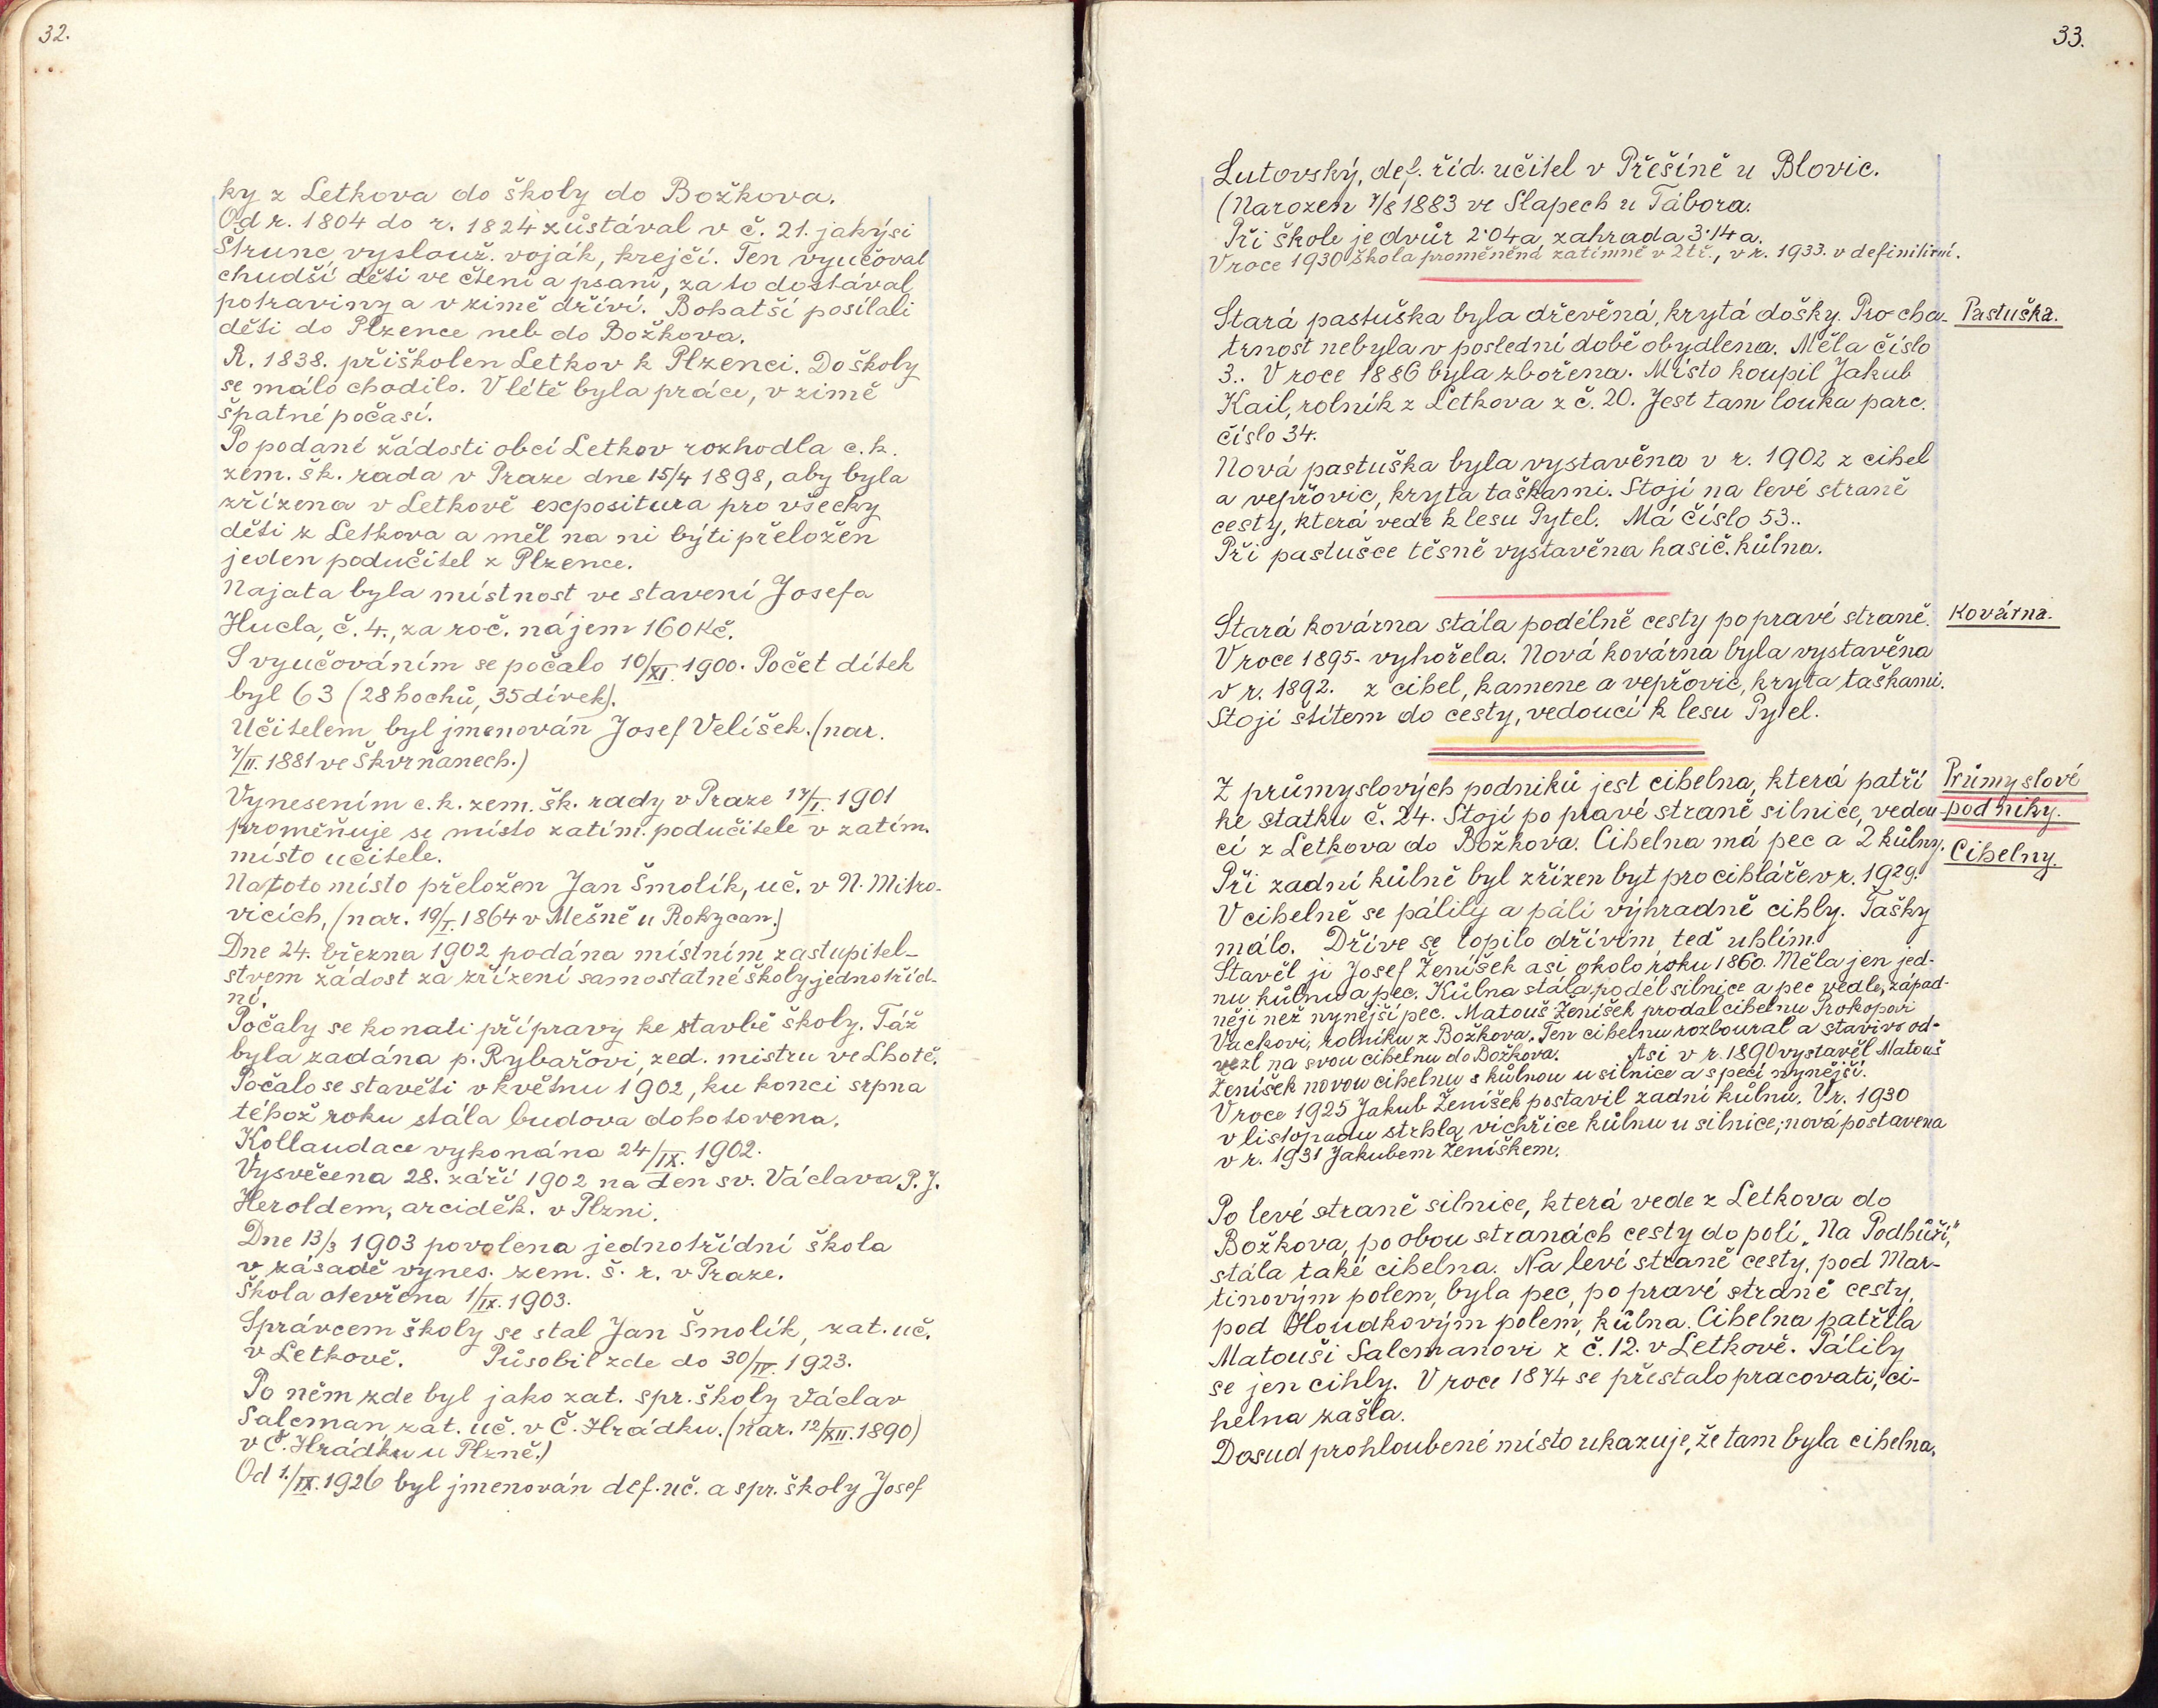 32.
ky z Letkova do školy do Božkova.
Od r. 1804 do r. 1824 zůstával v č. 21. jakýsi
Strunc, vyslouž. voják, krejčí. Ten vyučoval
chudší děti ve čtení a psaní, za to dostával
potraviny a v zimě dříví. Bohatší posílali
děti do Plzence neb do Božkova.
R. 1838. přiškolen Letkov k Plzenci. Do školy
se málo chodilo. V létě byla práce, v zimě
špatné počasí.
Po podané žádosti obcí Letkov rozhodla c. k.
zem. šk. rada v Praze dne 15/4 1898, aby byla
zřízena v Letkově expositura pro všecky
děti z Letkova a měl na ni býti přeložen
jeden podučitel z Plzence.
Najata byla místnost ve stavení Josefa
Hucla, č. 4., za roč. nájem 160 Kč.
S vyučováním se počalo 10/XI. 1900. Počet dítek
byl 63 (28 hochů, 35 dívek).
Učitelem byl jmenován Josef Velíšek. (nar.
7/II. 1881 ve Škvrňanech.)
Vynesením c. k. zem. šk. rady v Praze 17/I. 1901
proměňuje se místo zatím. podučitele v zatím.
místo učitele.
Na toto místo přeložen Jan Šmolík, uč. v N. Mitro-
vicích, (nar. 19/I. 1864 v Mešně u Rokycan.)
Dne 24. března 1902 podána místním zastupitel-
stvem žádost za zřízení samostatné školy jednotříd-
ní.
Počaly se konati přípravy ke stavbě školy. Táž
byla zadána p. Rybařovi, zed. mistru ve Lhotě.
Počalo se stavěti v květnu 1902, ku konci srpna
téhož roku stála budova dohotovena.
Kollaudace vykonána 24/IX. 1902.
Vysvěcena 28. září 1902 na den sv. Václava P. J.
Heroldem, arciděk. v Plzni.
Dne 13/3 1903 povolena jednotřídní škola
v zásadě vynes. zem. š. r. v Praze.
Škola otevřena 1/IX. 1903.
Správcem školy se stal Jan Šmolík, zat. uč.
v Letkově. Působil zde do 30/IV. 1923.
Po něm zde byl jako zat. spr. školy Václav
Salcman, zat. uč. v Č. Hrádku. (nar. 12/XII. 1890)
v Č. Hrádku u Plzně.)
Od 1./IX. 1926 byl jmenován def. uč. a spr. školy Josef
33.
Lutovský, def. říd. učitel v Přešíně u Blovic.
(Narozen 7/8 1883 ve Slapech u Tábora.
Při škole je dvůr 2·04a, zahrada 3·14 a.
V roce 1930 škola proměněna zatímně v 2tř., v r. 1933. v definitivní.
Stará pastuška byla dřevěná, krytá došky. Pro cha-
Pastuška.
trnost nebyla v poslední době obydlena. Měla číslo
3.. V roce 1886 byla zbořena. Místo koupil Jakub
Kail, rolník z Letkova z č. 20. Jest tam louka parc.
číslo 34.
Nová pastuška byla vystavěna v r. 1902 z cihel
a vepřovic, kryta taškami. Stojí na levé straně
cesty, která vede k lesu Pytel. Má číslo 53..
Při pastušce těsně vystavěna hasič. kůlna.
Stará kovárna stála podélně cesty po pravé straně.
Kovárna.
V roce 1895. vyhořela. Nová kovárna byla vystavěna
v r. 1892. z cihel, kamene a vepřovic, kryta taškami.
Stojí štítem do cesty, vedoucí k lesu Pytel.
Z průmyslových podniků jest cihelna, která patří
Průmyslové
ke statku č. 24. Stojí po pravé straně silnice, vedou-
podniky.
cí z Letkova do Božkova. Cihelna má pec a 2 kůlny.
Cihelny.
Při zadní kůlně byl zřízen byt pro cihláře v r. 1929.
V cihelně se pálily a pálí výhradně cihly. Tašky
málo. Dříve se topilo dřívím, teď uhlím.
Stavěl ji Josef Ženíšek asi okolo roku 1860. Měla jen jed-
nu kůlnu a pec. Kůlna stála podél silnice a pec vedle, západ-
něji než nynější pec. Matouš Ženíšek prodal cihelnu Prokopovi
Vackovi, rolníku z Božkova. Ten cihelnu rozboural a stavivo od-
vezl na svou cihelnu do Božkova. Asi v r. 1890 vystavěl Matouš
Ženíšek novou cihelnu s kůlnou u silnice a s pecí nynější.
V roce 1925 Jakub Ženíšek postavil zadní kůlnu. V r. 1930
v listopadu strhla vichřice kůlnu u silnice; nová postavena
v r. 1931 Jakubem Ženíškem.
Po levé straně silnice, která vede z Letkova do
Božkova, po obou stranách cesty do polí „Na Podhůří,"
stála také cihelna. Na levé straně cesty, pod Mar-
tinovým polem, byla pec, po pravé straně cesty,
pod Houdkovým polem, kůlna. Cihelna patřila
Matouši Salcmanovi z č. 12. v Letkově. Pálily
se jen cihly. V roce 1874 se přestalo pracovati, ci-
helna zašla.
Dosud prohloubené místo ukazuje, že tam byla cihelna.